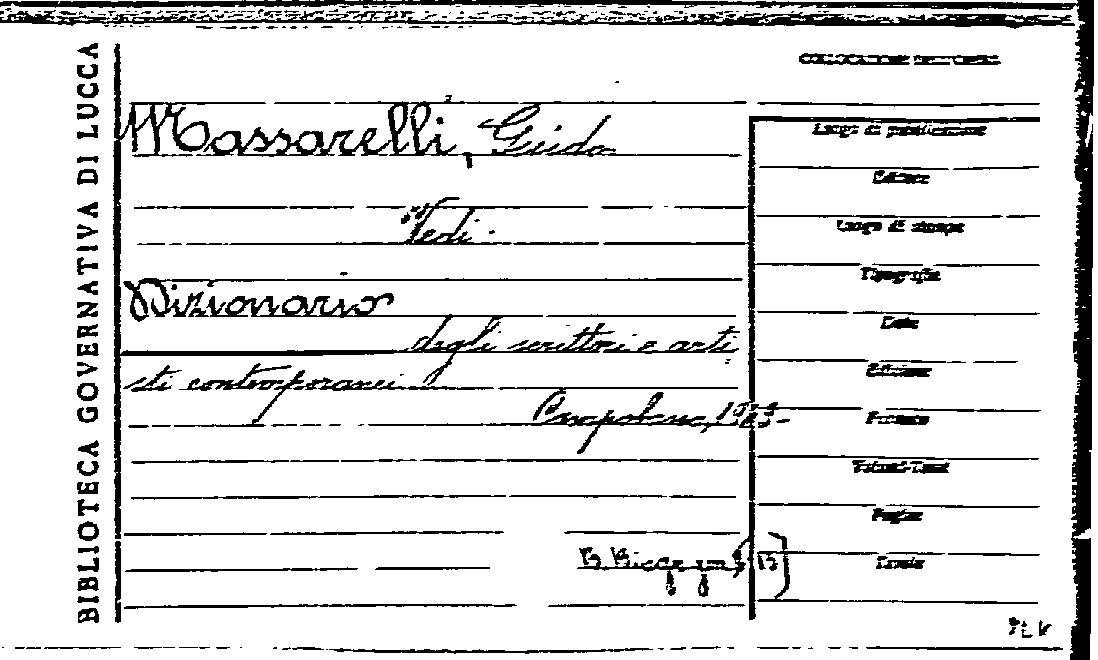 BIBLIOTECA GOVERNATIVA DI LUCCA
COLLOCAZIONE DELL'OPERA
Massarelli, Guido
Vedi.
Dizionario
degli scrittori e arti
sti contemporanei.
Luogo di pubblicazione
Editore
Luogo di stampa
Tipografia
Data
Edizione
Formato
Volumi-Tomi
Pagine
Tavole